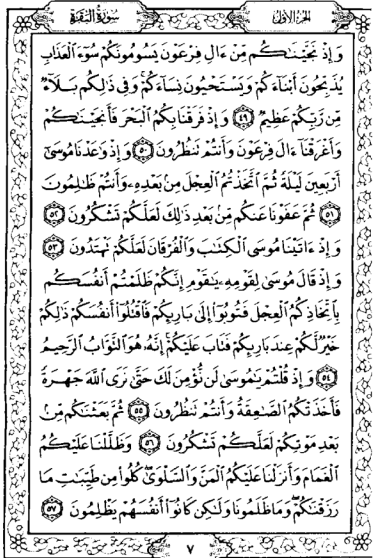 الجزء الأول
سورة البقرة
وَإِذْ نَجَّيْنَٰكُم مِّنْ ءَالِ فِرْعَوْنَ يَسُومُونَكُمْ سُوٓءَ ٱلْعَذَابِ
يُذَبِّحُونَ أَبْنَآءَكُمْ وَيَسْتَحْيُونَ نِسَآءَكُمْ وَفِى ذَٰلِكُم بَلَآءٌ
مِّن رَّبِّكُمْ عَظِيمٌ ٤٩ وَإِذْ فَرَقْنَا بِكُمُ ٱلْبَحْرَ فَأَنجَيْنَٰكُمْ
وَأَغْرَقْنَآ ءَالَ فِرْعَوْنَ وَأَنتُمْ تَنظُرُونَ ٥٠ وَإِذْ وَٰعَدْنَا مُوسَىٰٓ
أَرْبَعِينَ لَيْلَةً ثُمَّ ٱتَّخَذْتُمُ ٱلْعِجْلَ مِنۢ بَعْدِهِۦ وَأَنتُمْ ظَٰلِمُونَ
٥١ ثُمَّ عَفَوْنَا عَنكُم مِّنۢ بَعْدِ ذَٰلِكَ لَعَلَّكُمْ تَشْكُرُونَ ٥٢
وَإِذْ ءَاتَيْنَا مُوسَى ٱلْكِتَٰبَ وَٱلْفُرْقَانَ لَعَلَّكُمْ تَهْتَدُونَ ٥٣
وَإِذْ قَالَ مُوسَىٰ لِقَوْمِهِۦ يَٰقَوْمِ إِنَّكُمْ ظَلَمْتُمْ أَنفُسَكُم
بِٱتِّخَاذِكُمُ ٱلْعِجْلَ فَتُوبُوٓا۟ إِلَىٰ بَارِئِكُمْ فَٱقْتُلُوٓا۟ أَنفُسَكُمْ ذَٰلِكُمْ
خَيْرٌ لَّكُمْ عِندَ بَارِئِكُمْ فَتَابَ عَلَيْكُمْ إِنَّهُۥ هُوَ ٱلتَّوَّابُ ٱلرَّحِيمُ
٥٤ وَإِذْ قُلْتُمْ يَٰمُوسَىٰ لَن نُّؤْمِنَ لَكَ حَتَّىٰ نَرَى ٱللَّهَ جَهْرَةً
فَأَخَذَتْكُمُ ٱلصَّٰعِقَةُ وَأَنتُمْ تَنظُرُونَ ٥٥ ثُمَّ بَعَثْنَٰكُم مِّنۢ
بَعْدِ مَوْتِكُمْ لَعَلَّكُمْ تَشْكُرُونَ ٥٦ وَظَلَّلْنَا عَلَيْكُمُ
ٱلْغَمَامَ وَأَنزَلْنَا عَلَيْكُمُ ٱلْمَنَّ وَٱلسَّلْوَىٰ كُلُوا۟ مِن طَيِّبَٰتِ مَا
رَزَقْنَٰكُمْ وَمَا ظَلَمُونَا وَلَٰكِن كَانُوٓا۟ أَنفُسَهُمْ يَظْلِمُونَ ٥٧
٧